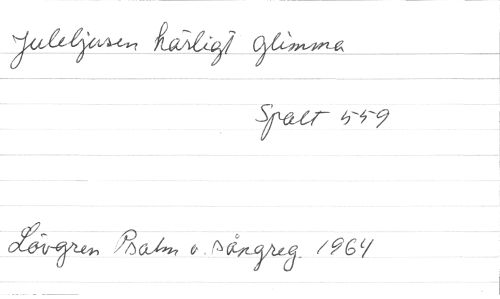 Juleljusen härligt glimma
Spalt 559
Lövgren Psalm o. sångreg. 1964